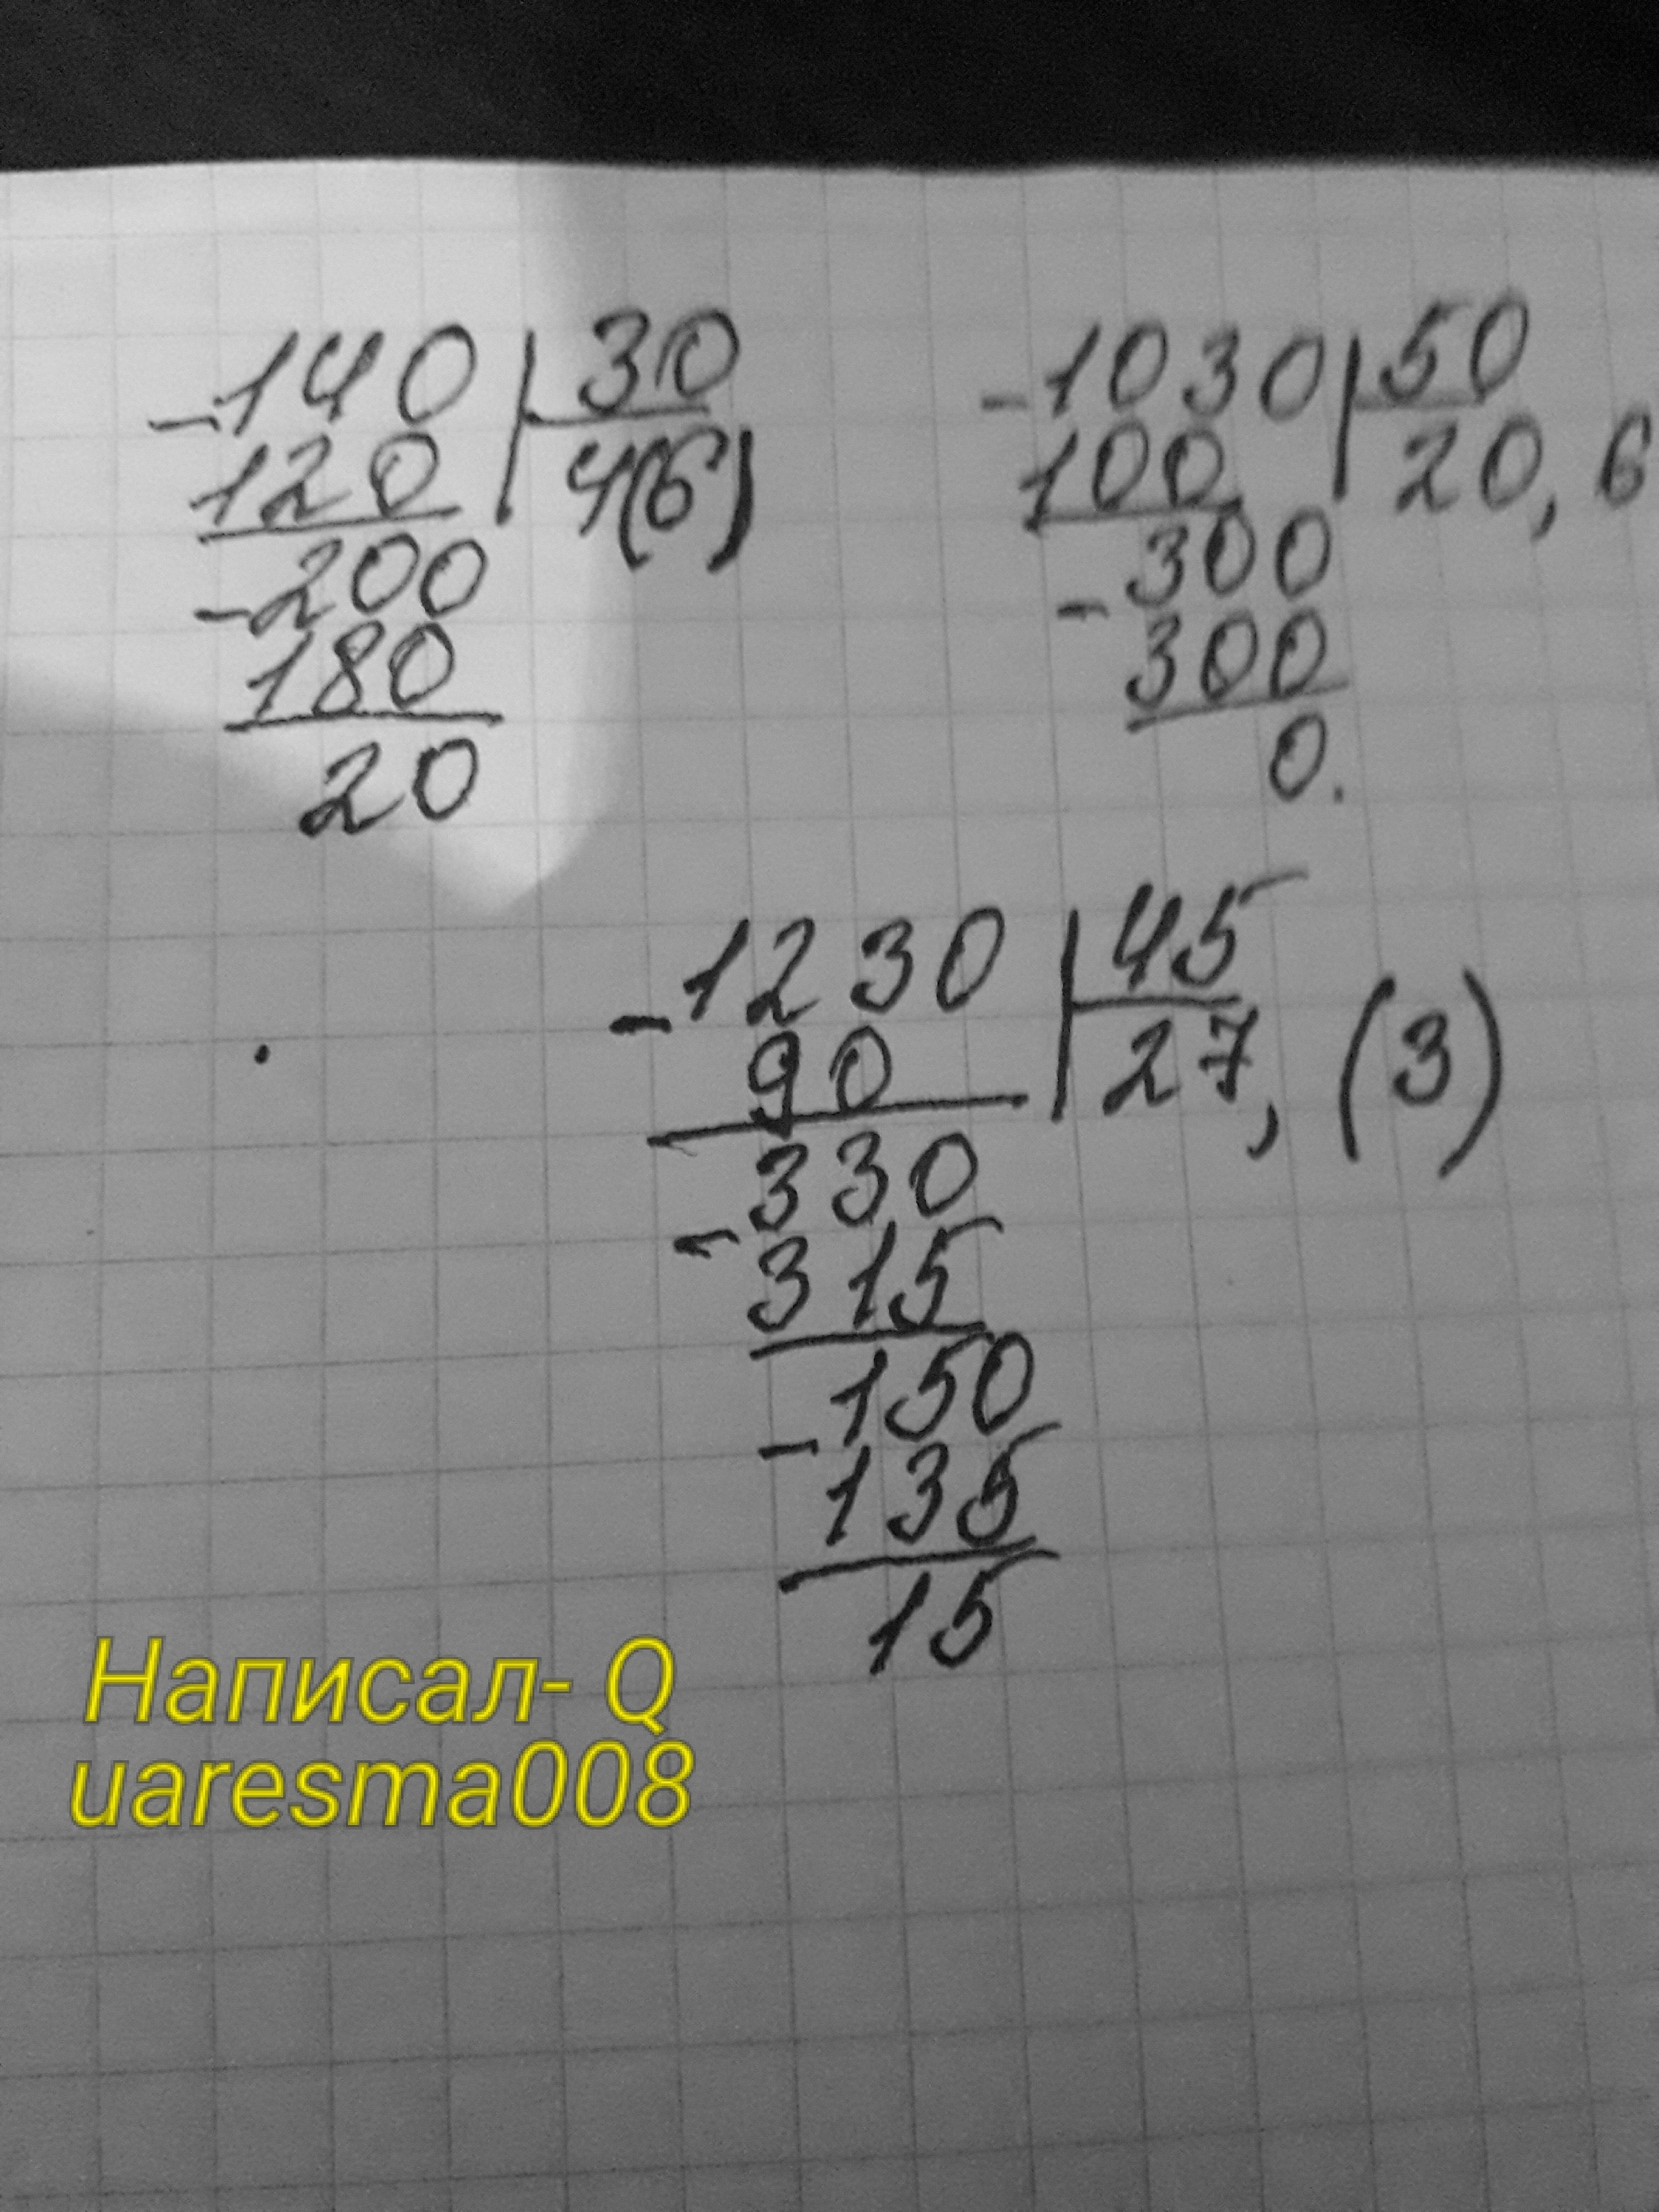 -140 | 30
120 | 4(6)
-200
180
20
-1030 | 50
100 | 20,6
-300
300
0.
-1230 | 45
90 | 27,(3)
-330
315
-150
135
15
Написал- Q
uaresma008